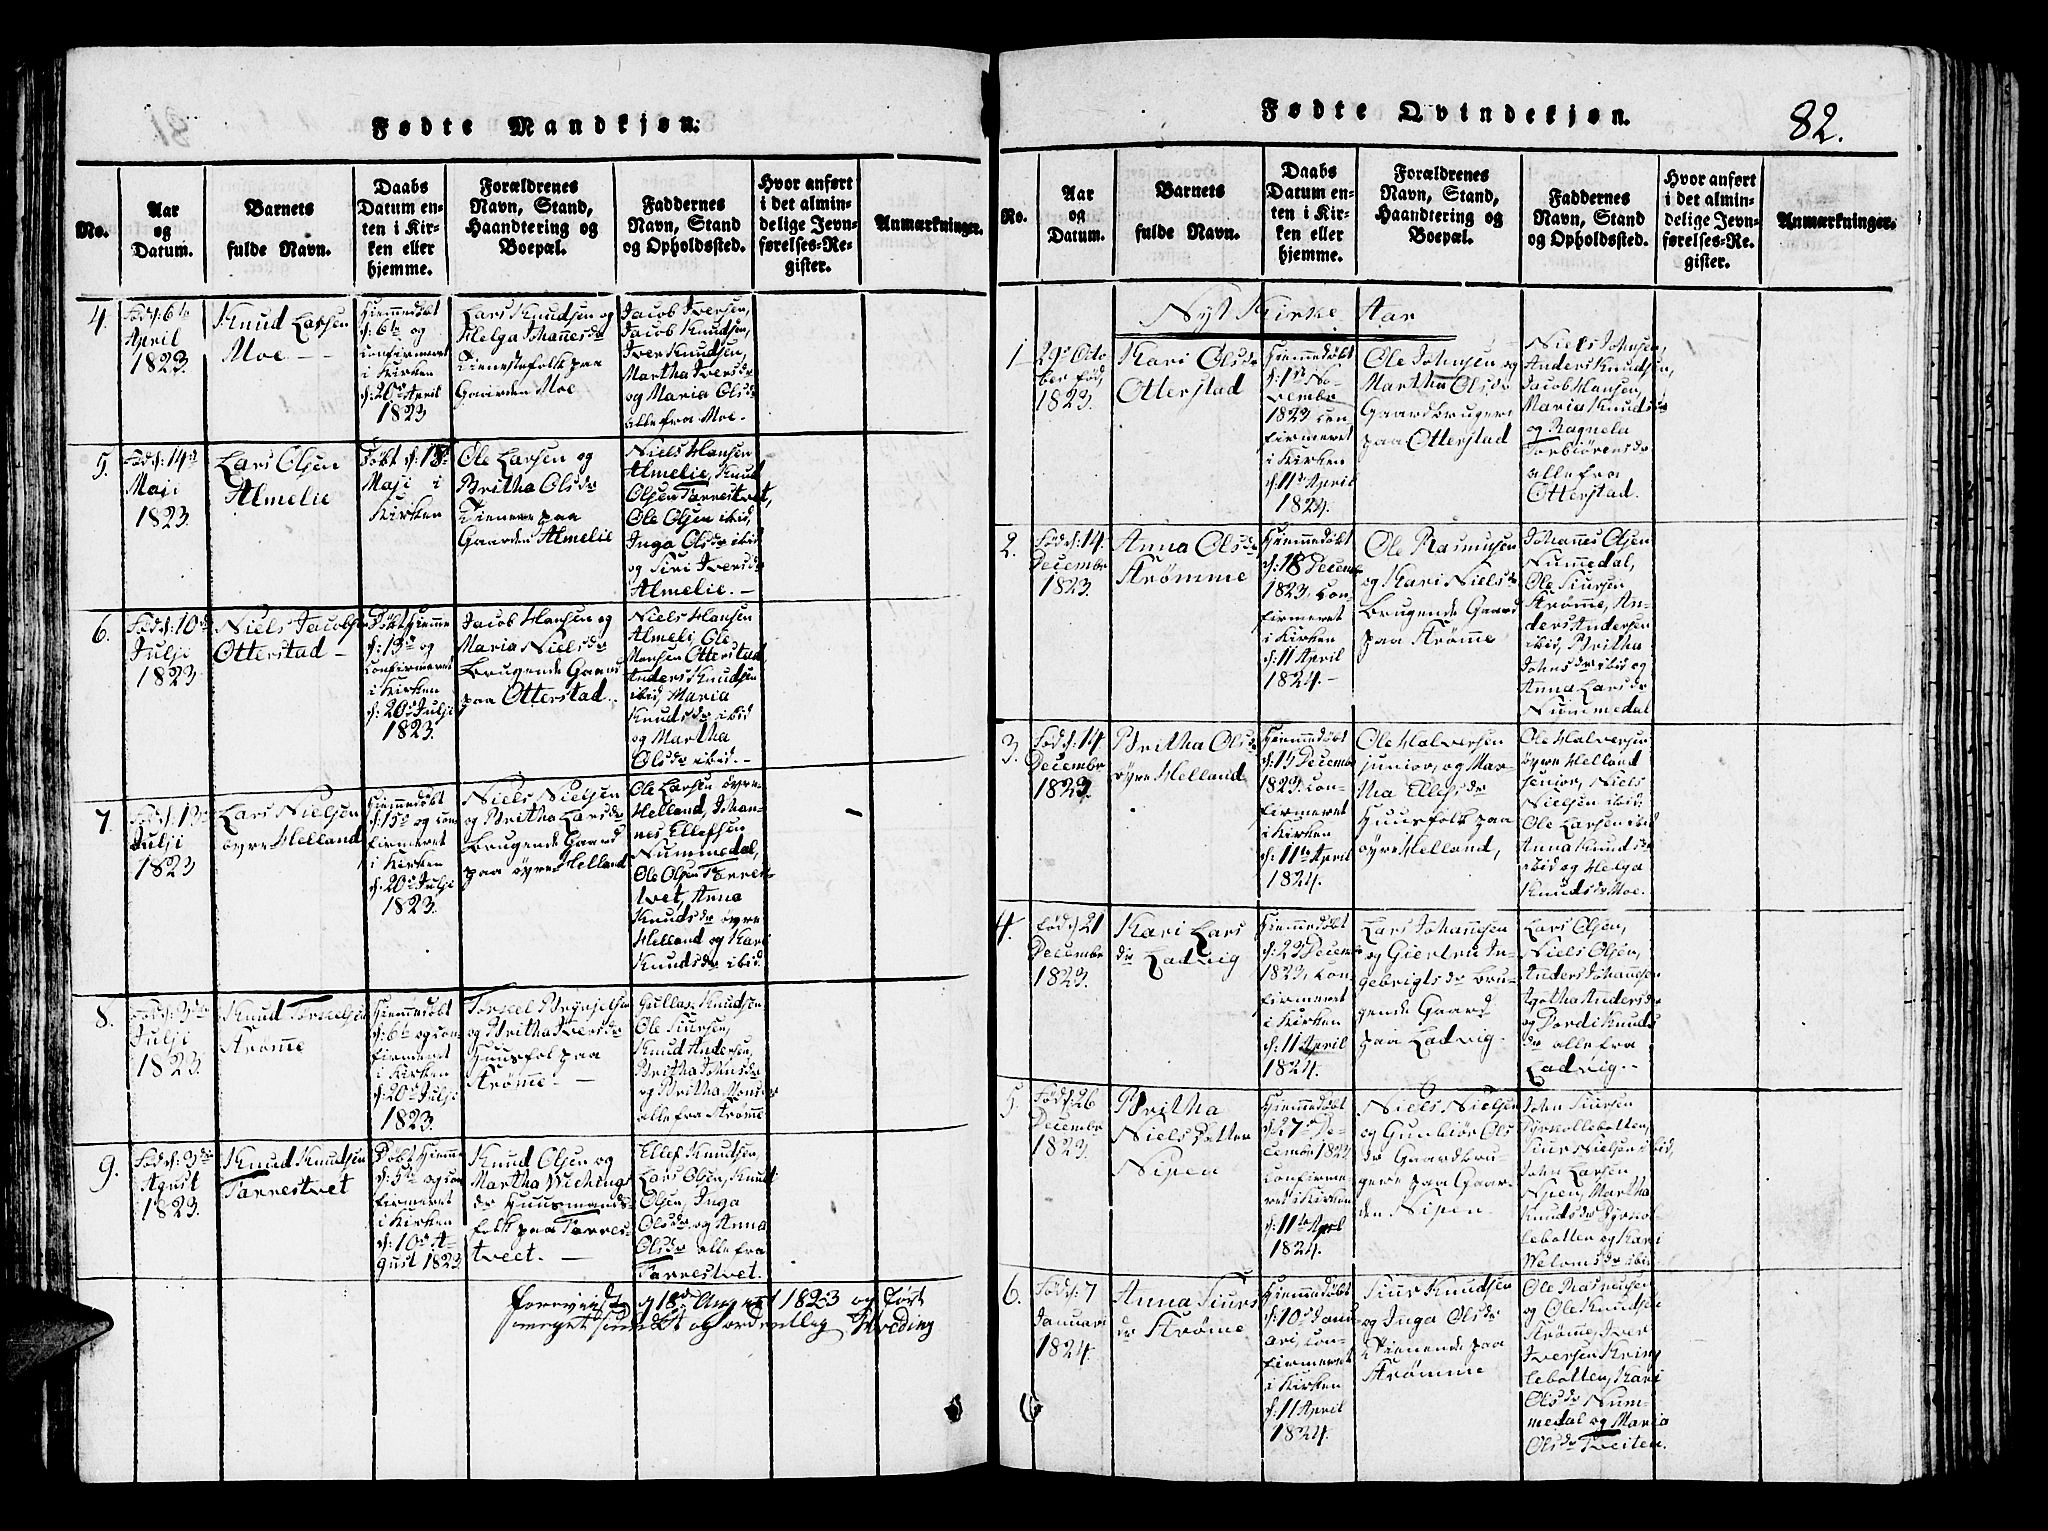 Fødte Mandkjøn.
No.
Aar
og
Datum.
Barnets
fulde Navn.
Daabs
Datum en-
ten i Kir-
ken eller
hjemme.
Forældrenes
Navn, Stand,
Haandtering og
Boepæl.
Faddernes
Navn, Stand
og Opholdssted.
Hvor anført
i det almin-
delige Jevn-
førelses-Re-
gister.
Anmærkninger.
4.
Fød d: 6te
April
1823.
Knud Larsen
Moe - -
Hiemmedøbt
d: 6te og
confirmeret
i Kirken
d: 20de April
1823
Lars Knudsen og
Helga Johannesdr
Tienestefolk paa
Gaarden Moe
Jacob Iversen,
Jacob Knudsen,
Iver Knudsen,
Martha Iversdr
og Maria Olsdr
alle fra Moe.
5.
Fød d: 14de
Maji
1823.
Lars Olsen
Almelie
Døbt d: 18de
Maji i
Kirken
Ole Larsen og
Britha Olsdr
Tienere paa
Gaarden Almelie
Niels Hansen
Almelie, Knud
Olsen Tarrestvet,
Ole Olsen ibid,
Inga Olsdr ibid
og Siri Iversdr
Almelie. -
6.
Fød d: 10de
Julji
1823
Niels Jacobsen
Otterstad -
Døbt Hiemme
d: 13de og
confirmeret
i Kirken
d: 20de Julji
1823.
Jacob Hansen og
Maria Nielsdr
Brugende Gaard
paa Otterstad.
Niels Hansen
Almeli, Ole
Monsen Otterstad,
Anders Knudsen
ibid, Maria
Knudsdr ibid
og Martha
Olsdr ibid. -
7.
Fød d: 13de
Julji
1823
Lars Nielsen
øvre Helland
Hiemmedøbt
d: 15de og con
firmeret
i Kirken
d: 20de Julji
1823.
Niels Nielsen
og Britha Larsdr
Brugende Gaard
paa øvre Helland
Ole Larsen øvre
Helland, Johan-
nes Ellefsen
Nummedal,
Ole Olsen Tarrest-
tvet, Anna
Knudsdr øvre
Helland og Kari
Knudsdr ibid.
8.
Fød d: 3de
Julji
1823.
Knud Torselsen
Strøme
Hiemmedøbt
d: 6te og con
firmeret
i Kirken
d: 20de Julji
1823.
Torsel Brynjelsen
og Britha Iversdr
Huusfolk paa
Strøme. -
Gullac Knudsen
Ole Siursen,
Knud Andersen,
Britha Johnsdr
og Britha Monsdr
alle fra Strøme
9.
Fød d: 3de
Agust
1823.
Knud Knudsen
Tarrestvet
Døbt Hiemme
d: 5te og con
firmeret
i Kirken
d: 10de A-
gust 1823
Knud Olsen og
Martha Wichings
dr Huusmands-
folk paa Tarres-
tveet. -
Ellef Knudsen,
Lars Olsen, Knud
Olsen, Inga
Olsdr og Anna
Olsdr alle fra
Tarrestvet.
Foreviist d 18de August 1823 og ført
meget smukt og ordentlig
Fødte Qvindekjøn.
82.
No.
Aar
og
Datum.
Barnets
fulde Navn.
Daabs
Datum en-
ten i Kir-
ken eller
hjemme.
Forældrenes
Navn, Stand,
Haandtering og
Boepæl.
Faddernes
Navn, Stand
og Opholdssted.
Hvor anført
i det almin-
delige Jevn-
førelses-Re-
gister.
Anmærkninger.
Nyt Kirke Aar
1
29de Octo
ber fød,
1823.
Kari Olsdr
Otterstad
Hiemmedøbt
d: 1te No-
vembr
1823 con
firmeret
i Kirken
d: 11te April
1824.
Ole Johnsen og
Martha Olsdr
Gaardbrugere
paa Otterstad
Niels Johnsen,
Anders Knudsen,
Jacob Hansen,
Maria Knudsdr
og Ragnela
Torbiörensdr
alle fra
Otterstad.
2.
Fød d: 14.
Decembr
1823.
Anna Olsdr
Strømme
Hiemmedøbt
d: 18 Decembr
1823, con-
firmeret
i Kirken
d: 11 April
1824. -
Ole Rasmusen
og Kari Nielsdr
Brugende Gaard
paa Strøme
Johannes Olsen
Nummedal,
Ole Siursen
Strøme, An-
ders Andersen
ibid, Britha
Johnsdr ibid og
Anna Larsdr
Nummedal
3.
Fød d: 14
Decembr
1823.
Britha Olsdr
øvre Helland
Hiemmedøbt
d: 15 Decembr
1823. con-
firmeret
i Kirken
d: 11te April
1824.
Ole Halversen
junior, og Mar-
tha Ellefsdr
Huusfolk paa
øvre Helland,
Ole Halversen
øvre Helland
senior, Niels
Nielsen ibid,
Ole Larsen ibid
Anna Knudsdr
ibid og Helga
Knudsdr Moe.
4.
fød d 21
Decembr
1823.
Kari Lars
dr Ladvig
Hiemmedøbt
d: 23 Decem
1823, con-
firmeret
i Kirken
d: 11 April
1824.
Lars Johannsen
og Giertru In-
gebrigtsdr Bru-
gende Gaard
paa Ladvig.
Lars Olsen,
Niels Olsen,
Anders Johannsen
Agatha Andersdr
og Dordi Knuds
dr alle fra
Ladvig. -
5.
Fød d: 26
Decembr
1823.
Britha
Niels Datter
Nipen
Hiemmedøbt
d: 27de De-
cembr 1823
confirme-
ret i Kirken
d: 11te Aprl
1824.
Niels Nielsen
og Gunbiör Ols
dr Gaardbru-
gere paa Gaar-
den Nipen.
John Siursen
Byrkollebotten,
Siur Nielsen ibid,
John Larsen
Nipen, Martha
Knudsdr Byrkol-
lebotten og Kari
Welomsdr ibid
6.
Fød d: 7
Januari
1824.
Anna Siurs
dr Strøme
Hiemmedøbt
d: 10de Janu
ari, con-
firmeret
i Kirken
d: 11 April
1824.
Siur Knudsen
og Inga Olsdr
Tienende paa
Strømme
Ole Rasmusen
og Ole Knudsen
Strøme, Iver
Iversen Kring
lebotten, Kari
Olsdr Num-
medal og Maria
Olsdr Tveiten.